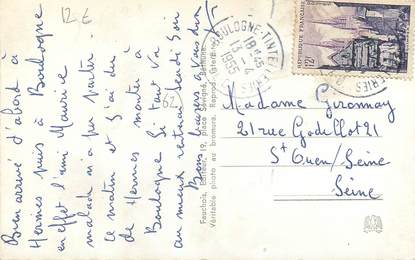 12 €
Bien arrivé d'abord à
Hermes puis à Boulogne
en effet l'ami Maurice
malade n'a pu partir
ce matin et j'ai dû
de Hermes monter à
Boulogne. Si tout va
au mieux rentrerai lundi soir
Bons baisers à vous deux
62
Fauchois, Editeur, 19, place Sévigné, Béthune
Véritable photo au bromure. Reprod. interdite
BOULOGNE-TINTELLERIES
18H45
13-4
1955
REPUBLIQUE FRANÇAISE
12F
Madame Giromay
21 rue Godillot 21
St Ouen/Seine
Seine